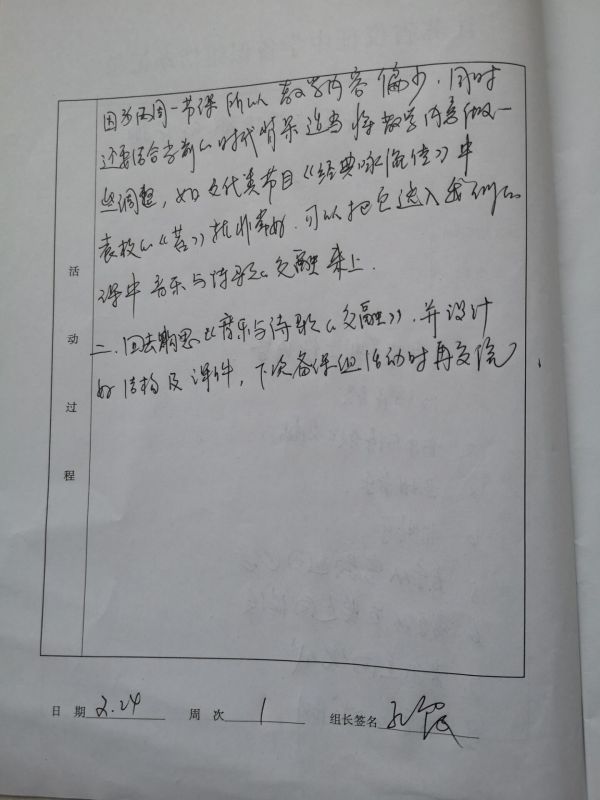 因为两周一节课 所以 教学内容 偏少. 同时
还要结合当前的时代背景 适当将教学内容做一
些调整, 如 文化类节目《经典咏流传》中
袁枚的《苔》就非常好. 可以把它选入我们的
课中 音乐与诗歌的交融 来上.
二. 回去构思《音乐与诗歌的交融》. 并设计
好结构及课件, 下次备课组活动时再交流.
活
动
过
程
日 期 2.24 周 次 1 组长签名